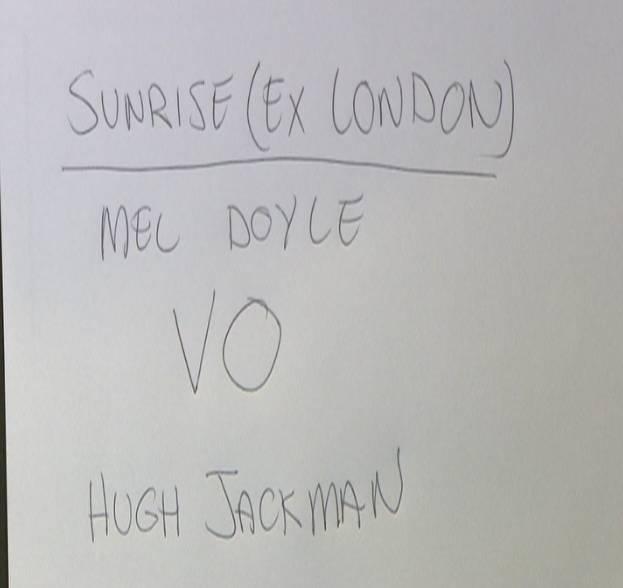 SUNRISE (EX LONDON)
MEL DOYLE
VO
HUGH JACKMAN